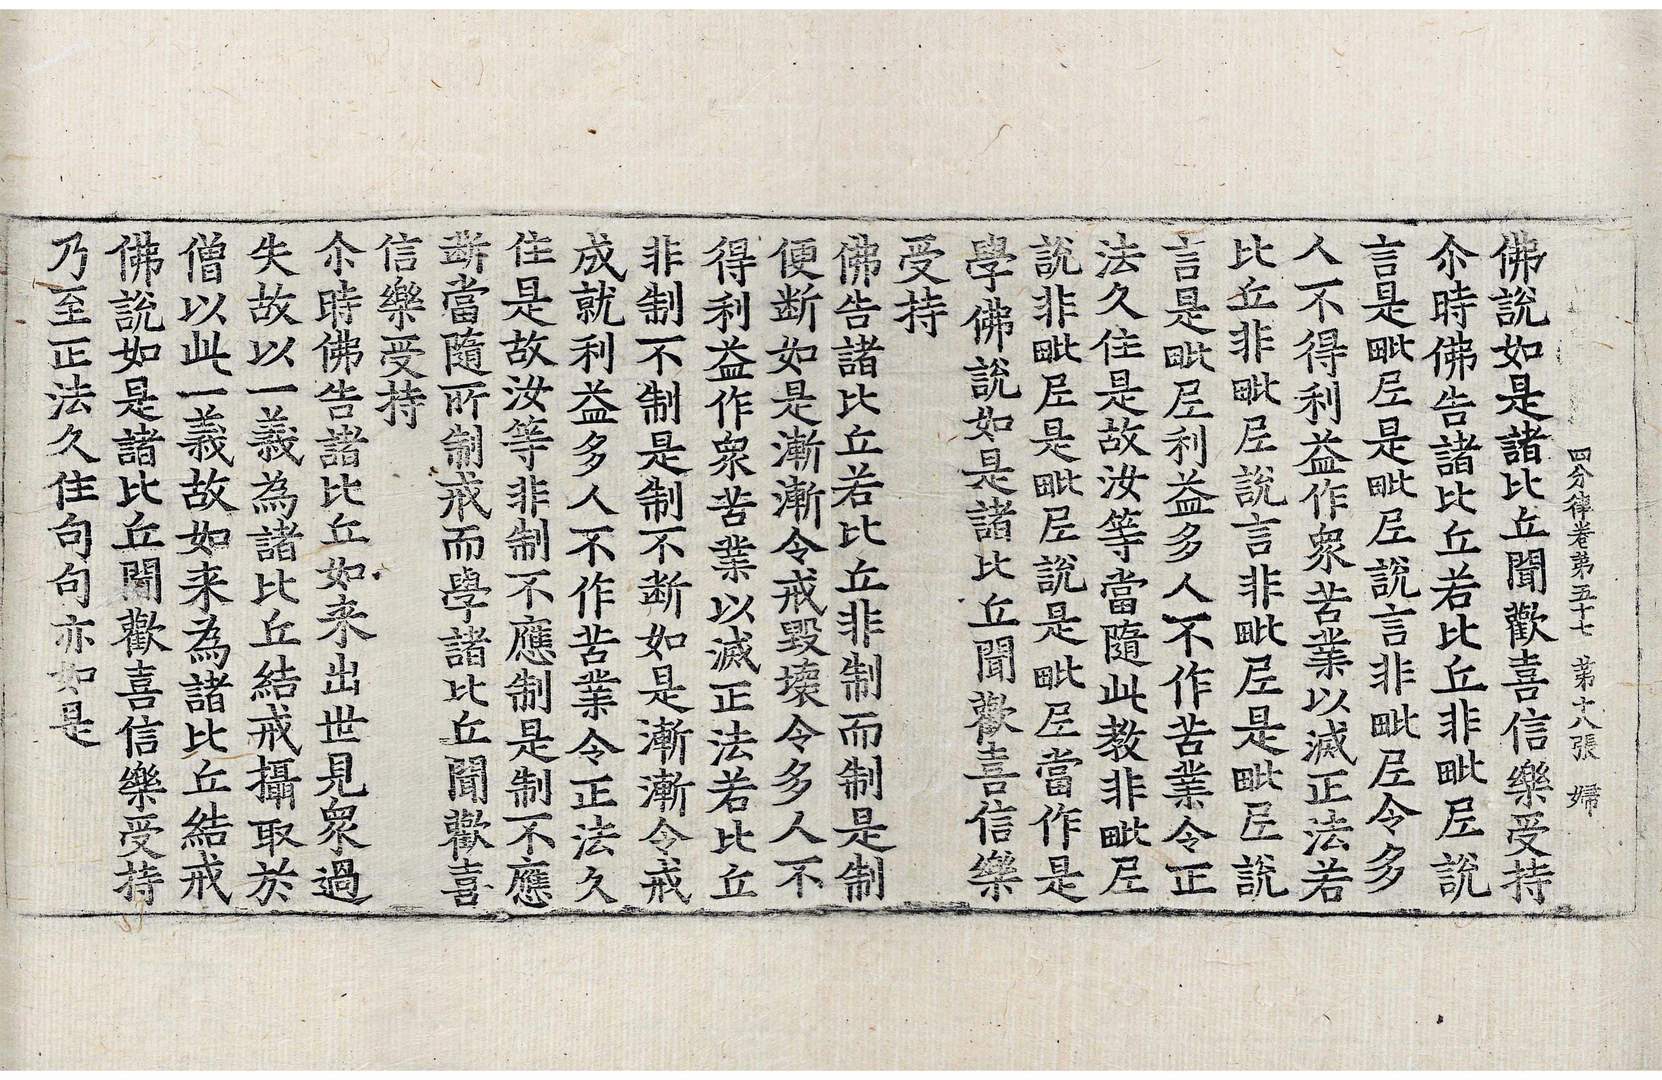 四分律卷第五十七　第十八張　婦
佛說如是諸比丘聞歡喜信樂受持
尒時佛告諸比丘若比丘非毗尼說
言是毗尼是毗尼說言非毗尼令多
人不得利益作衆苦業以滅正法若
比丘非毗尼說言非毗尼是毗尼說
言是毗尼利益多人不作苦業令正
法久住是故汝等當隨此教非毗尼
說非毗尼是毗尼說是毗尼當作是
學佛說如是諸比丘聞歡喜信樂
受持
佛告諸比丘若比丘非制而制是制
便断如是漸漸令戒毀壞令多人不
得利益作衆苦業以滅正法若比丘
非制不制是制不断如是漸漸令戒
成就利益多人不作苦業令正法久
住是故汝等非制不應制是制不應
断當隨所制戒而學諸比丘聞歡喜
信樂受持
尒時佛告諸比丘如来出世見衆過
失故以一義為諸比丘結戒攝取於
僧以此一義故如来為諸比丘結戒
佛說如是諸比丘聞歡喜信樂受持
乃至正法久住句句亦如是